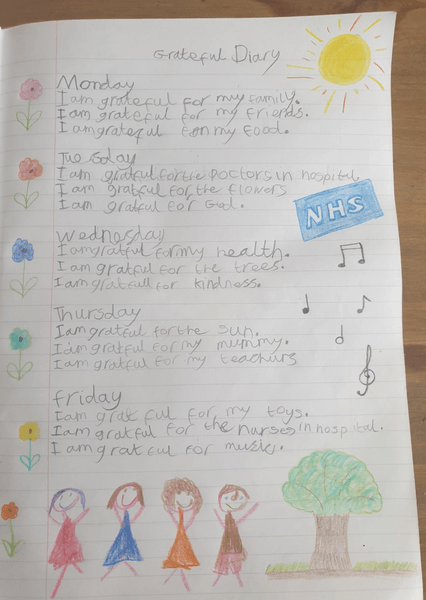 Grateful Diary
Monday
I am grateful for my family.
I am grateful for my friends.
I am grateful for my food.
Tuesday
I am gratful for the Doctors in hospital.
I am gratful for the flowers
I am gratful for God.
NHS
Wednesday
I am gratful for my health.
I am gratful for the trees.
I am gratfull for kindness.
Thursday
I am gratful for the sun.
I am gratful for my mummy.
I am gratful for my teachurs
Friday
I am gratful for my toys.
I am gratful for the nurses in hospital.
I am gratful for music.